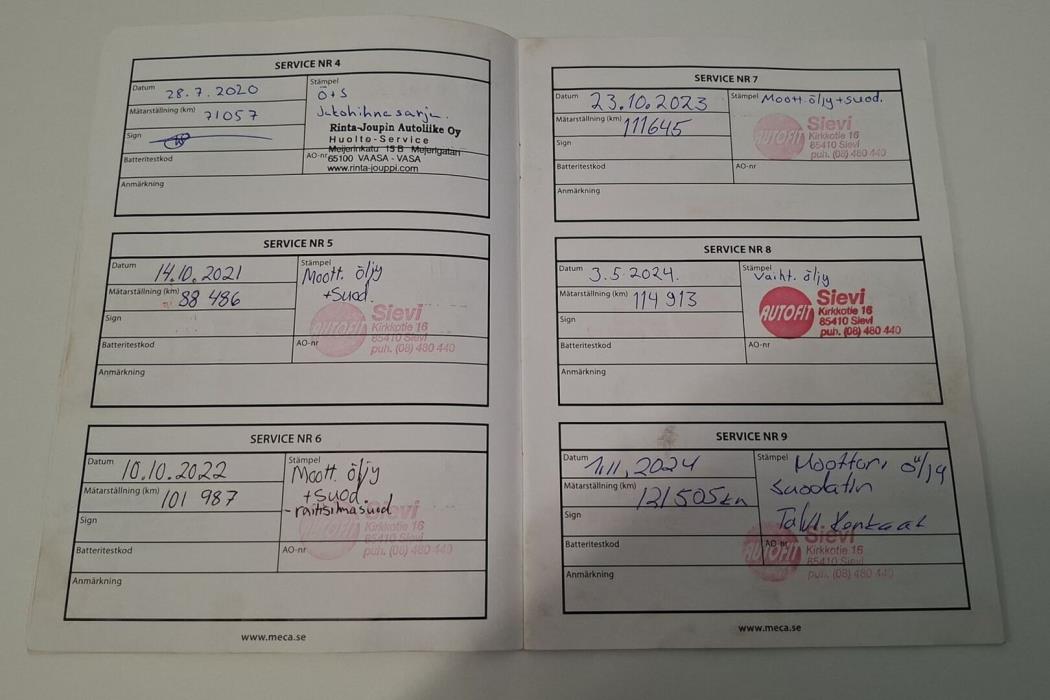 SERVICE NR 4
Datum 28.7.2020
Stämpel
Ö+S
Jakohihnasarja.
Mätarställning (km) 71057
Sign
Rinta-Joupin Autoliike Oy
Huolto-Service
Meijerinkatu 15 B Mejerigatan
Batteritestkod
AO-nr 65100 VAASA - VASA
www.rinta-jouppi.com
Anmärkning
SERVICE NR 5
Datum 14.10.2021
Stämpel
Moott. öljy
+suod.
Mätarställning (km) 88 486
Sign
AUTOFIT Sievi
Kirkkotie 16
85410 Sievi
puh. (08) 480 440
Batteritestkod
AO-nr
Anmärkning
SERVICE NR 6
Datum 10.10.2022
Stämpel
Moott. öljy
+suod.
-raitisilmasuod
Mätarställning (km) 101 987
Sign
Sievi
Kirkkotie 16
puh. (08) 480 440
Batteritestkod
AO-nr
Anmärkning
www.meca.se
SERVICE NR 7
Datum 23.10.2023
Stämpel Moott. öljy+suod.
Mätarställning (km) 111645
Sign
AUTOFIT Sievi
Kirkkotie 16
85410 Sievi
puh. (08) 480 440
Batteritestkod
AO-nr
Anmärkning
SERVICE NR 8
Datum 3.5.2024.
Stämpel
Vaiht. öljy
Mätarställning (km) 114 913
Sign
AUTOFIT Sievi
Kirkkotie 16
85410 Sievi
puh. (08) 480 440
Batteritestkod
AO-nr
Anmärkning
SERVICE NR 9
Datum 1.11.2024
Stämpel Moottori öljy
Suodatin
Mätarställning (km) 121505km
Sign
Talvi Renkaat
AUTOFIT Sievi
Kirkkotie 16
85410 Sievi
puh. (08) 480 440
Batteritestkod
AO-nr
Anmärkning
www.meca.se